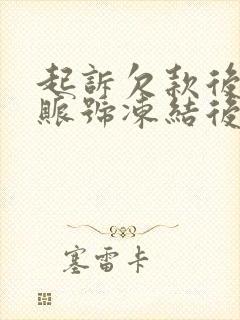 起訴欠款後
賬號凍結後
塞雷卡